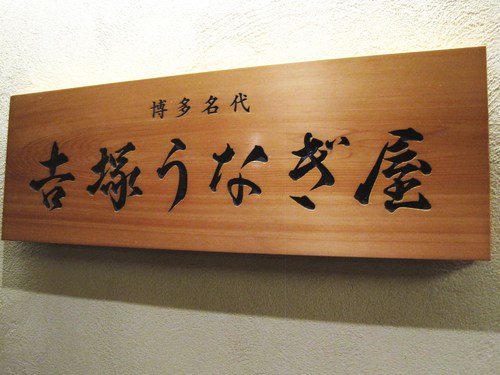 博多名代
吉塚うなぎ屋